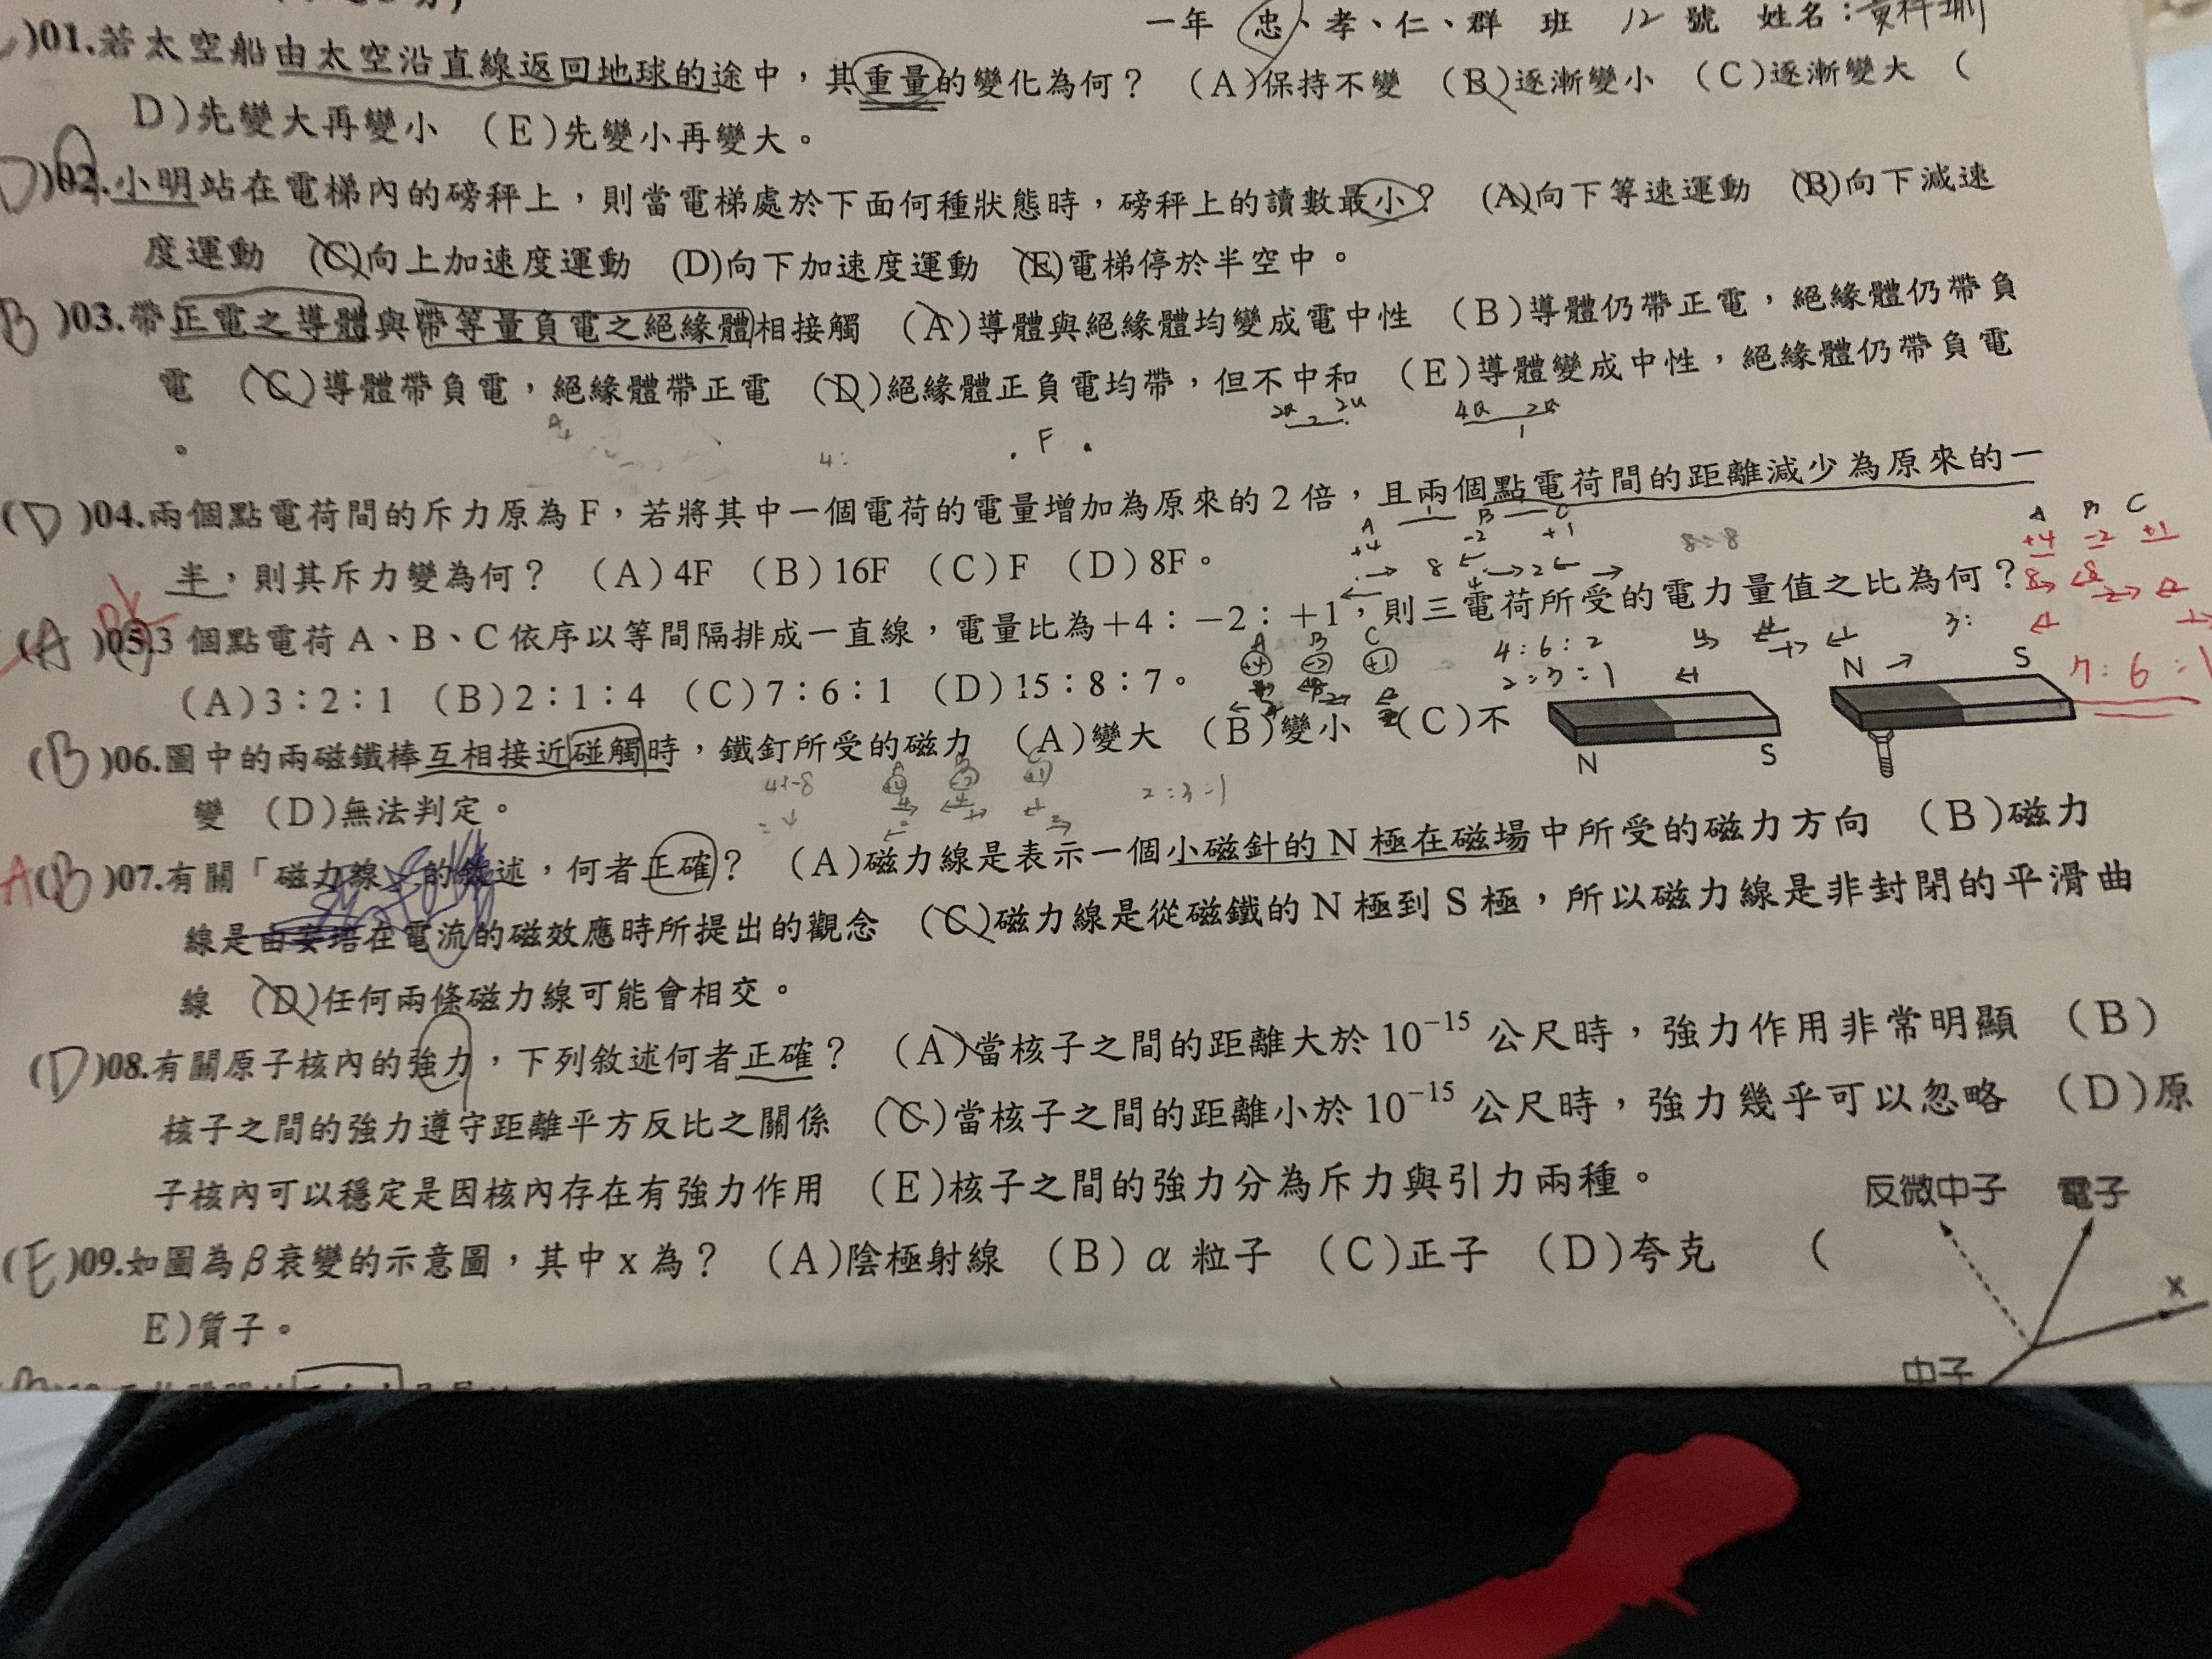 一年 忠、孝、仁、群 班 12 號 姓名：
)01.若太空船由太空沿直線返回地球的途中，其重量的變化為何？ (A)保持不變 (B)逐漸變小 (C)逐漸變大 (
D)先變大再變小 (E)先變小再變大。
D)02.小明站在電梯內的磅秤上，則當電梯處於下面何種狀態時，磅秤上的讀數最小？ (A)向下等速運動 (B)向下減速
度運動 (C)向上加速度運動 (D)向下加速度運動 (E)電梯停於半空中。
B )03.帶正電之導體與帶等量負電之絕緣體相接觸 (A)導體與絕緣體均變成電中性 (B)導體仍帶正電，絕緣體仍帶負
電 (C)導體帶負電，絕緣體帶正電 (D)絕緣體正負電均帶，但不中和 (E)導體變成中性，絕緣體仍帶負電
。
F
(D )04.兩個點電荷間的斥力原為F，若將其中一個電荷的電量增加為原來的2倍，且兩個點電荷間的距離減少為原來的一
半，則其斥力變為何？ (A)4F (B)16F (C)F (D)8F。
A B C
+4 -2 +1
(A )05.3個點電荷A、B、C依序以等間隔排成一直線，電量比為+4：-2：+1，則三電荷所受的電力量值之比為何？
(A)3：2：1 (B)2：1：4 (C)7：6：1 (D)15：8：7。
4:6:2
2:3:1
7:6:1
(B )06.圖中的兩磁鐵棒互相接近碰觸時，鐵釘所受的磁力 (A)變大 (B)變小 (C)不
變 (D)無法判定。
N S
N S
2:3:1
A(B )07.有關「磁力線」的敘述，何者正確？ (A)磁力線是表示一個小磁針的N極在磁場中所受的磁力方向 (B)磁力
線是由安培在電流的磁效應時所提出的觀念 (C)磁力線是從磁鐵的N極到S極，所以磁力線是非封閉的平滑曲
線 (D)任何兩條磁力線可能會相交。
(D )08.有關原子核內的強力，下列敘述何者正確？ (A)當核子之間的距離大於10⁻¹⁵公尺時，強力作用非常明顯 (B)
核子之間的強力遵守距離平方反比之關係 (C)當核子之間的距離小於10⁻¹⁵公尺時，強力幾乎可以忽略 (D)原
子核內可以穩定是因核內存在有強力作用 (E)核子之間的強力分為斥力與引力兩種。
(E )09.如圖為β衰變的示意圖，其中x為？ (A)陰極射線 (B)α粒子 (C)正子 (D)夸克 (
E)質子。
反微中子 電子
x
中子